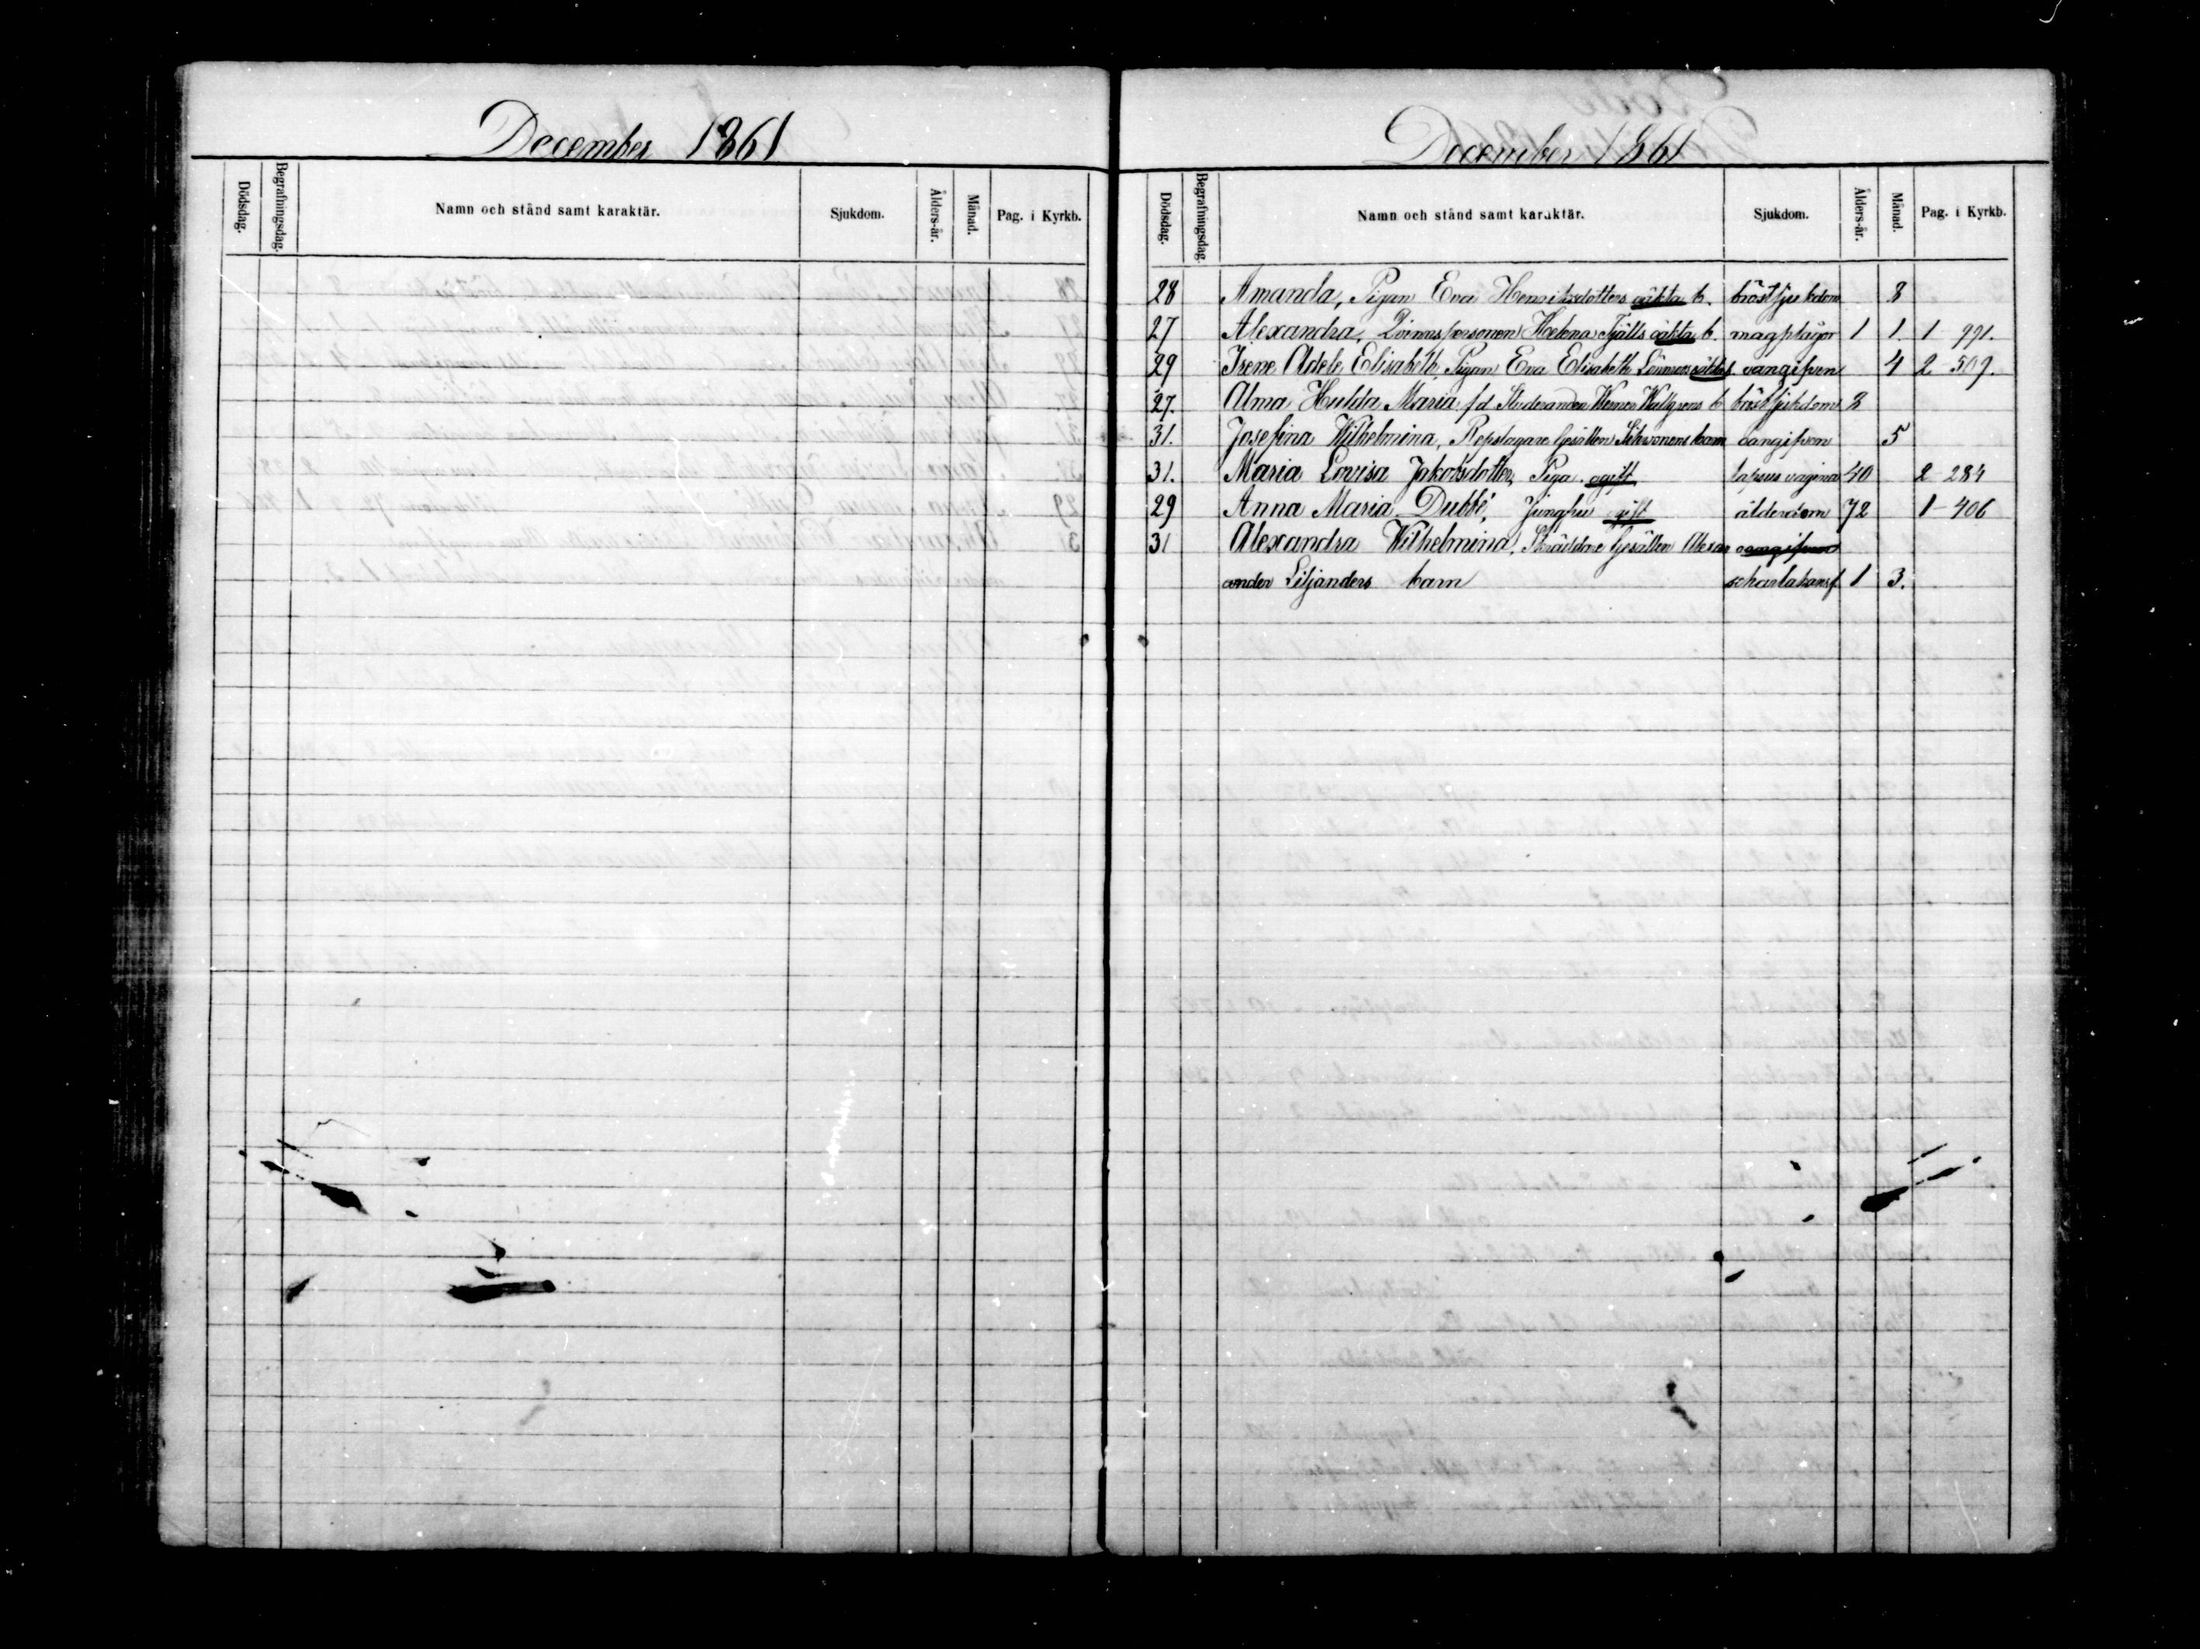 December 1861
Dödsdag. Begrafningsdag. Namn och stånd samt karaktär. Sjukdom. Ålders-år. Månad. Pag. i Kyrkb.
December 1861
Dödsdag. Begrafningsdag. Namn och stånd samt karaktär. Sjukdom. Ålders-år. Månad. Pag. i Kyrkb.
28 Amanda, Pigan Eva Henriksdotters oäkta b. bröstsjukdom 8
27 Alexandra, Qvinnspersonen Helena Fjälls oäkta b. magplågor 1 1. 1 - 991.
29 Irene Adele Elisabeth, Pigan Eva Elisabeth oangifven 4 2 - 509.
27. Alma Hulda Maria f d Studeranden Werner Wallgrens b bröstsjukdom 2
31. Josefina Wilhelmina, Repslagare Gesällen barn oangifven 5
31. Maria Lovisa Jakobsdotter, Piga. ogift lapsus vagina 40 2 - 284
29 Anna Maria Dubbé, Jungfru gift ålderdom 72 1 - 406
31 Alexandra Wilhelmina, Skräddare Gesällen Alexan oangifven
ander Liljanders barn scharlakansf. 1 3.